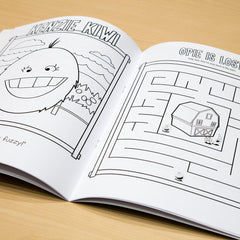 KENZIE KIWI
fuzzy!"
OPIE IS LOST